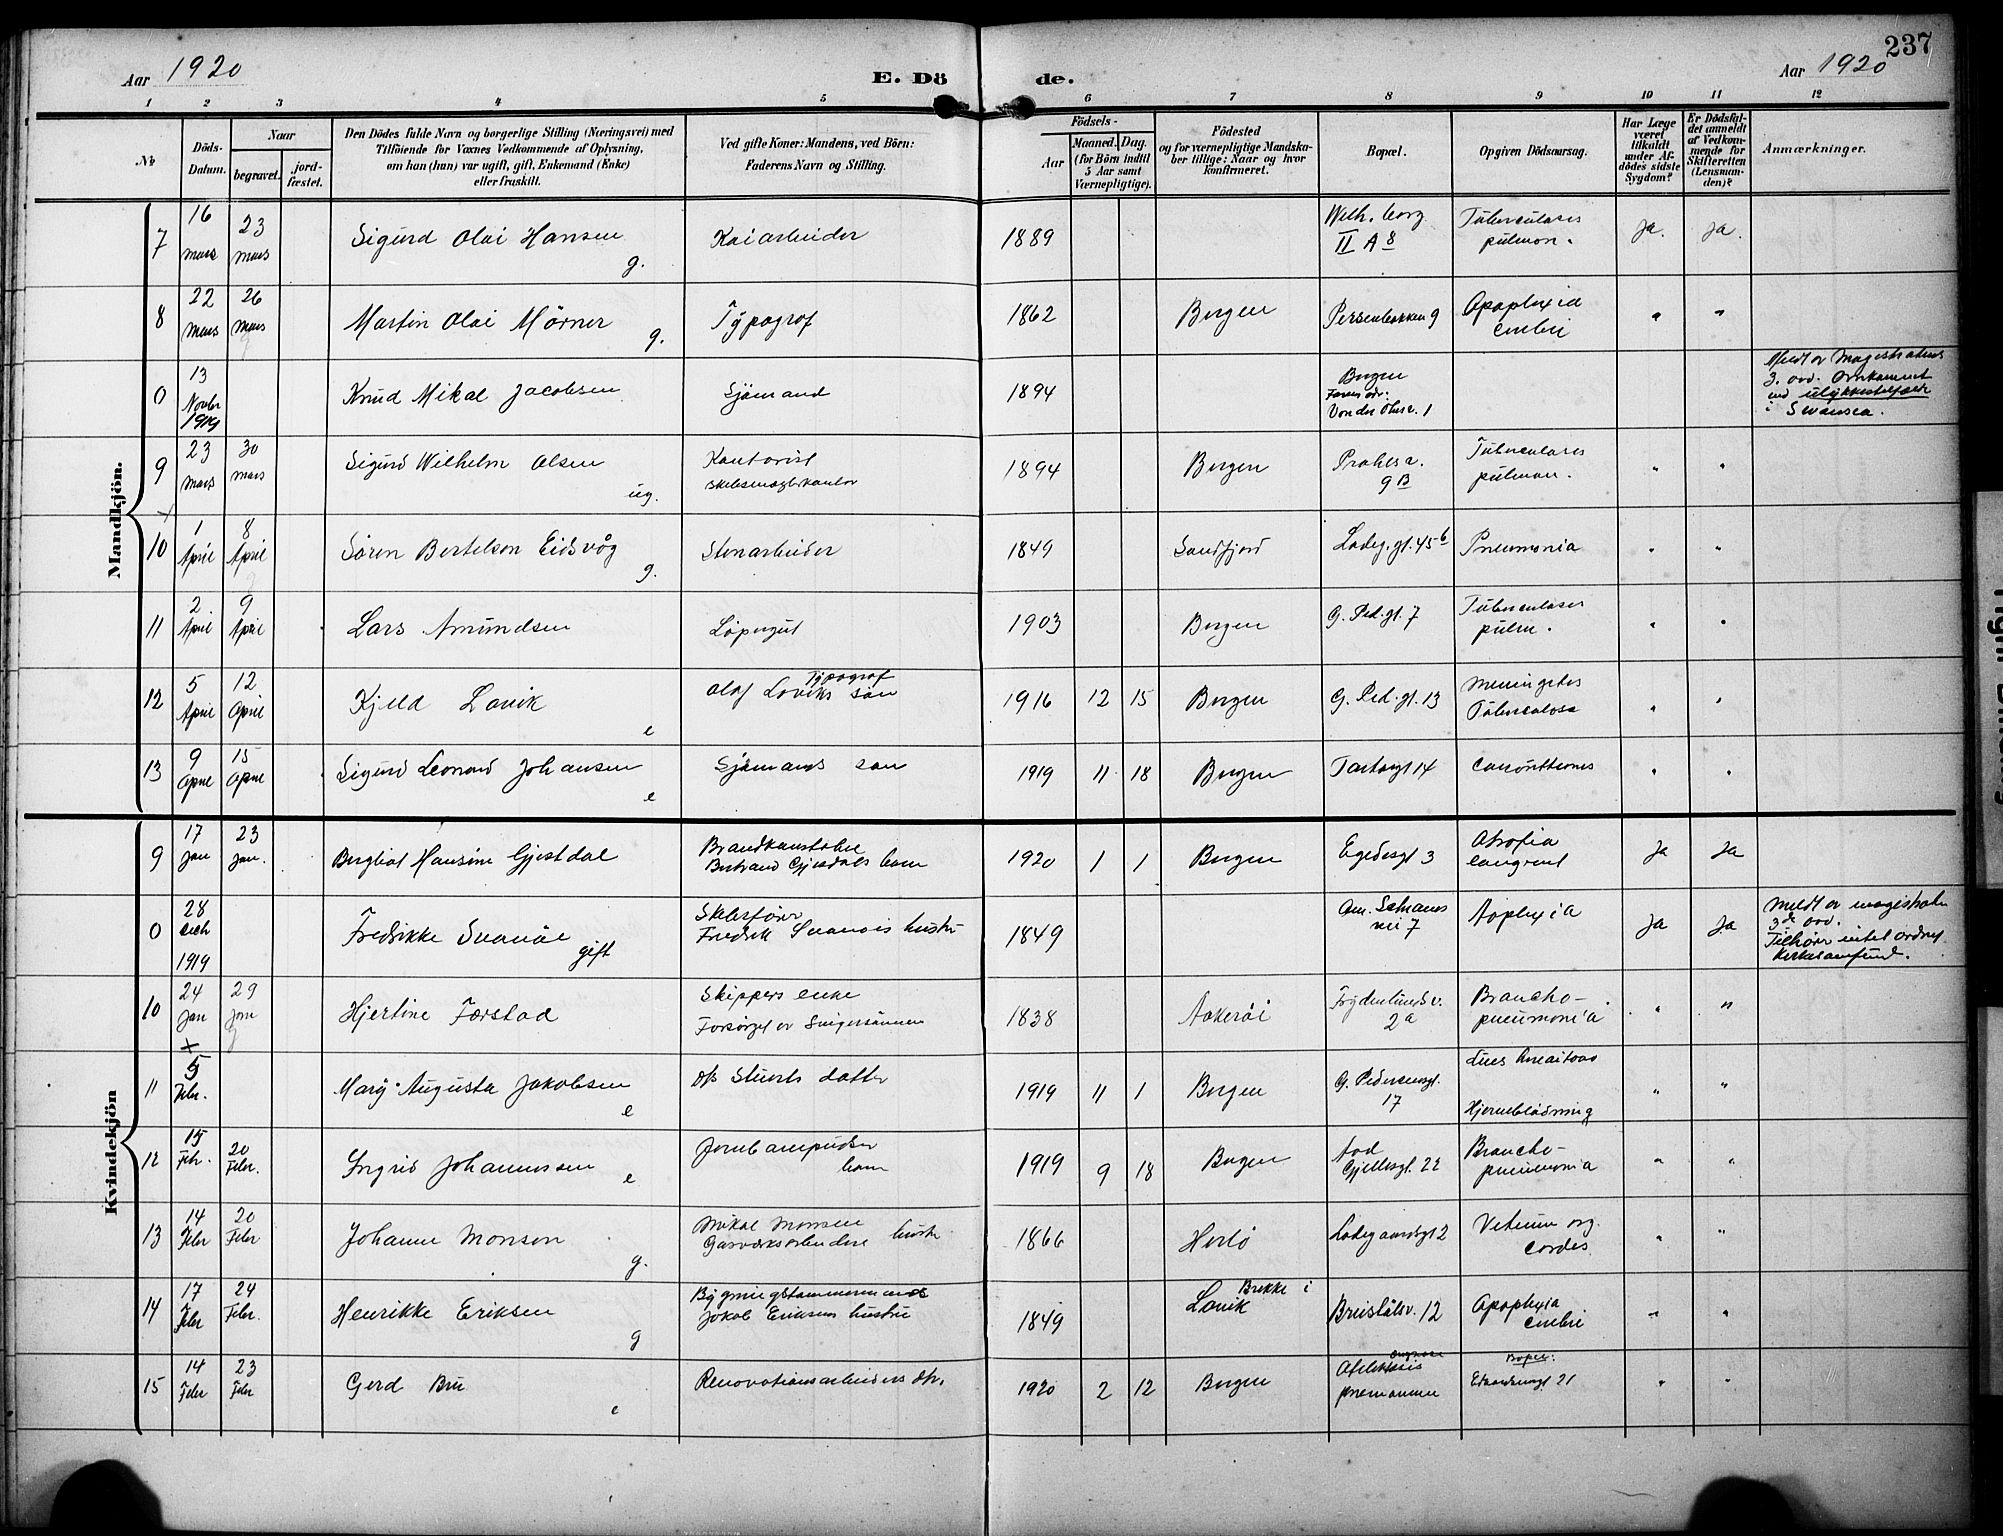 237
Aar 1920
E. Dö de.
Aar 1920
1 2 3 4 5 6 7 8 9 10 11 12
No
Döds-Datum.
Naar
begravet.
jord-fæstet.
Den Dödes fulde Navn og borgerlige Stilling (Næringsvei) med
Tilföiende for Voxnes Vedkommende af Oplysning,
om han (hun) var ugift, gift, Enkemand (Enke)
eller fraskilt.
Ved gifte Koner: Mandens, ved Börn:
Faderens Navn og Stilling.
Födsels-
Aar
Maaned. Dag.
(for Börn indtil
5 Aar samt
Værnepligtige).
Födested
og for værnepligtige Mandska-
ber tillige: Naar og hvor
konfirmeret.
Bopæl.
Opgiven Dödsaarsag.
Har Læge
været
tilkaldt
under Af-
dödes sidste
Sygdom?
Er Dödsfal-
det anmeldt
af Vedkom-
mende for
Skifteretten
(Lensman-
den)?
Anmærkninger.
Mandkjön.
7 16 mars 23 mars Sigurd Olai Hansen g. Kaiarbeider 1889 II A 8 Tuberculoses pulmon. Ja. Ja.
8 22 Mars 26 Mars Martin Olai Mörner g. Typograf 1862 Bergen Persenbakken 9 Apoplexia cerebri " "
0 13 Novbr 1919 Knud Mikal Jacobsen Sjömand 1894 Bergen 1 Meldt av Magistratens 3. avd. Omkommet ved ulykkestilfælde i Swansea.
9 23 mars 30 mars Sigurd Wilhelm Olsen ug. Kontorist skibsmæglerkontor 1894 Bergen 9 B Tuberculoses pulmon. " "
10 1 April 8 April Sören Bertelson Eidsvåg g. Stenarbeider 1849 Sandfjord Ladeg.gt. 45 b Pneumonia " "
11 2 April 9 April Lars Amundsen Löpergut 1903 Bergen G. Ped. gt. 7 Tuberculoses pulm. " "
12 5 April 12 April Kjeld Lavik e Typograf Olaf Laviks sön 1916 12 15 Bergen G. Ped. gt. 13 Meningitis Tuberculosa " "
13 9 April 15 April Sigurd Leonard Johansen e Sjömands sön 1919 11 18 Bergen 14 " "
Kvindekjön
9 17 Jan 23 Jan. Bergliot Hansine Gjestdal Brandkonstabel Bertrand Gjesdals barn 1920 1 1 Bergen Egedesgt 3 Atrofia congenit Ja Ja
0 28 1919 Fredrikke Svanöe gift Skibsförer Fredrik Svanöes hustr 1849 7 Apoplexia Ja Ja Meldt av magistraten 3 de avd. Tilhörer intet ordnet Kirkesamfund.
10 24 Jan 29 Jan Hjertine Færstad Skippers enke Forsörget av Svigersönnen 1838 Askeröi Frydenlundsv. 2a Broncho-pneumonia " "
11 5 Febr. Mary Augusta Jakobsen e d/s Stuerts datter 1919 11 1 Bergen G. Pedersensgt. 17 Hjerneblödning " "
12 15 Febr. 20 Febr. Ingrid Johannessen e barn 1919 9 18 Bergen Aad Gjellesgt. 22 Broncho-pneumonia " "
13 14 Febr 20 Febr Johanne Monsen g. Mikal Monsen Gasværksarbeiders hustr 1866 Herlö Ladegaardsgt 2 Vitium org. cordis " "
14 17 Febr 24 Febr. Henrikke Eriksen g Bygningstömmermands Jokob Eriksens hustru 1849 Brekke i Lavik 12 Apoplexia cerebri " "
15 14 Febr 23 Febr Gerd Bru e Renovationsarbeiders dtr. 1920 2 12 Bergen Bopæl: Edvardsensgt 21 " "